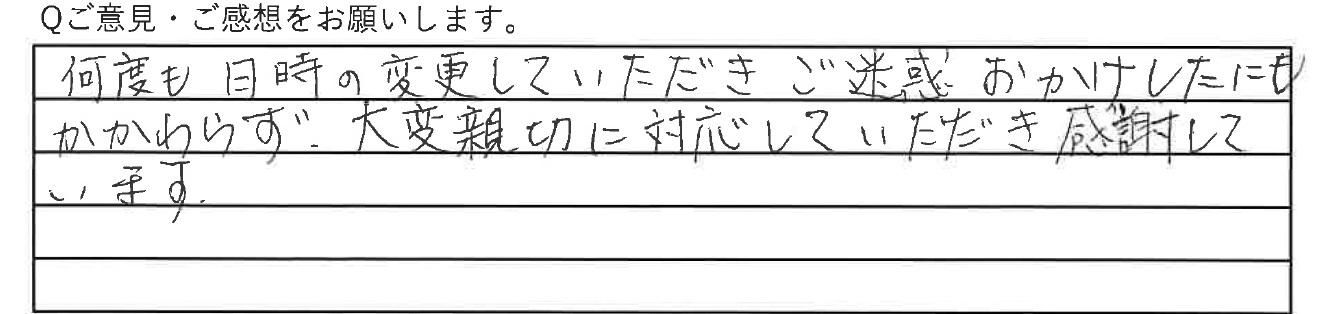 Qご意見・ご感想をお願いします。
何度も日時の変更していただきご迷惑おかけしたにも
かかわらず、大変親切に対応していただき感謝して
います。